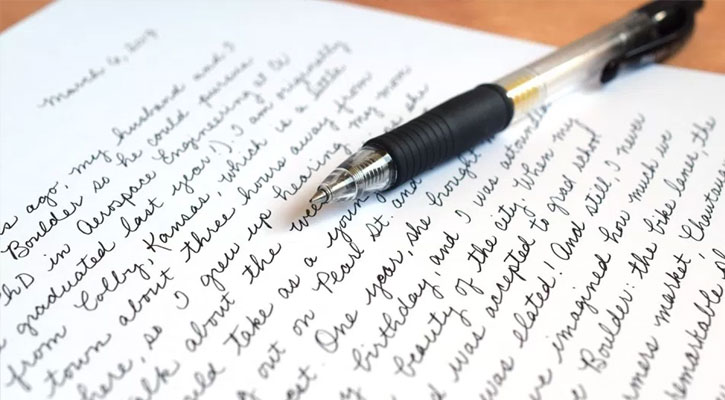 March 6, 2019
ago, my husband and I
Boulder so he could pursue
PhD in Aerospace Engineering at CU
graduated last year!). I am originally
from Colby, Kansas, which is a little
town about three hours away from
here, so I grew up hearing my mom
talk about the
would take as a young
out on Pearl St. and
One year, she brought
birthday, and I was astounded
beauty of the city. When my
was accepted to grad school
was elated! And still, I never
imagined how much we
Boulder: the bike lanes, the
farmers market, Chautauqua
remarkable